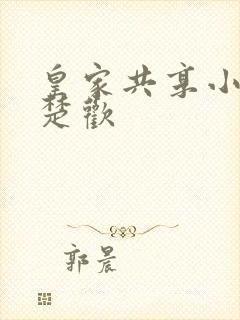 皇家共享小
楚歡
郭晨